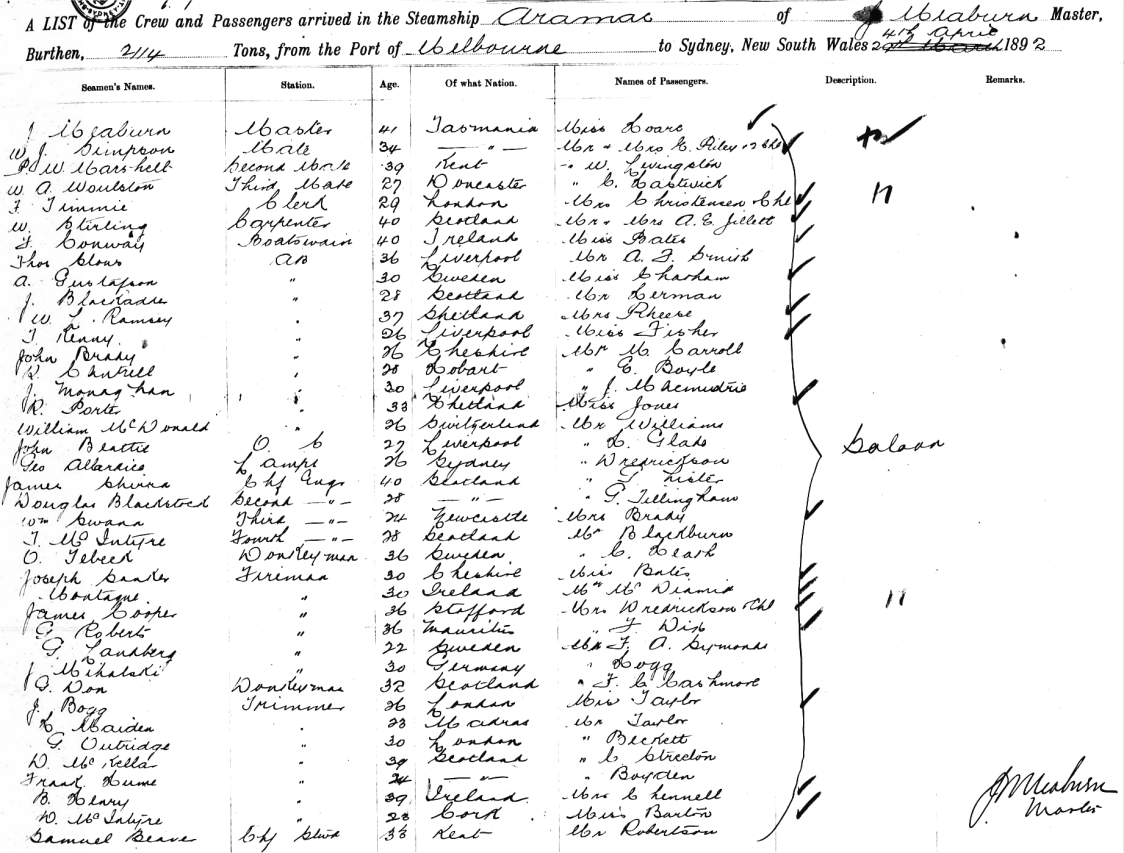 A LIST of the Crew and Passengers arrived in the Steamship Aramac of J Meaburn Master,
Burthen, 2114 Tons, from the Port of Melbourne to Sydney, New South Wales 4th April 1892
Seamen's Names. Station. Age. Of what Nation. Names of Passengers. Description. Remarks.
J Meaburn Master 41 Tasmania Miss Hoare
W J. Simpson Mate 34 — " — Mr & Mrs E. Riley
W. Marshell Second Mate 39 Kent " W. Livingston
W. A. Woulston Third Mate 27 Doncaster " C. Hastwick
F Timmie Clerk 29 London Mrs Christensen & Chl 11
W. Stirling Carpenter 40 Scotland Mr & Mrs A. E. Jillett
F. Conway Boatswain 40 Ireland Miss Bates
Thos AB 36 Liverpool Mr A. F. Smith
A. Gustafson " 30 Sweden Miss Charham
J. Blackadder " 28 Scotland Mr Herman
W. L. Ramsey " 37 Shetland Mrs Rheese
T. Kenny " 26 Liverpool Miss Fisher
John Brady " 26 Cheshire Mr M. Carroll
Cantrell " 28 Hobart " E. Boyle
J. Monaghan " 30 Liverpool " J.
R. Porter " 33 Shetland Miss Jones
William McDonald " 26 Switzerland Mr Williams
John Beattie O. S 27 Liverpool " H. Glade Saloon
Geo Allardice Lamps 26 Sydney " Wredrickson
James Shirra Chf Engr 40 Scotland " T. Lister
Douglas Blackstock Second — " — 28 — " — " G. Tillingham
Wm Swann Third — " — 24 Newcastle Mrs Brady
T. McIntyre Fourth — " — 28 Scotland Mr Blackburn
O. Tebeck Donkeyman 36 Sweden " C. Heath
Joseph Fireman 30 Cheshire Miss Bates
Montague " 30 Ireland Mr McDiamid
James Cooper " 36 Stafford Mrs Wredrickson & Chl 11
G Roberts " 36 Mauritius " F Dix
G. Landberg " 22 Sweden Mr F. A. Symonds
J Mihalski " 30 Germany " Hogg
G. Don Donkeyman 32 Scotland " F. C Cashmore
J. Bogg Trimmer 26 London Miss Taylor
H Maiden " 23 Madras Mr Taylor
G. Outridge " 30 London " Beckett
D. McKellar " 39 Scotland " C Streeton
Frank Hume " 24 — " — " Boyden
B. Henry " 39 Ireland Mrs Chennell
D. McIntyre " 28 Cork Miss Barton
Samuel Beaver Chf Stwd 36 Kent Mr Robertson
J Meaburn
Master